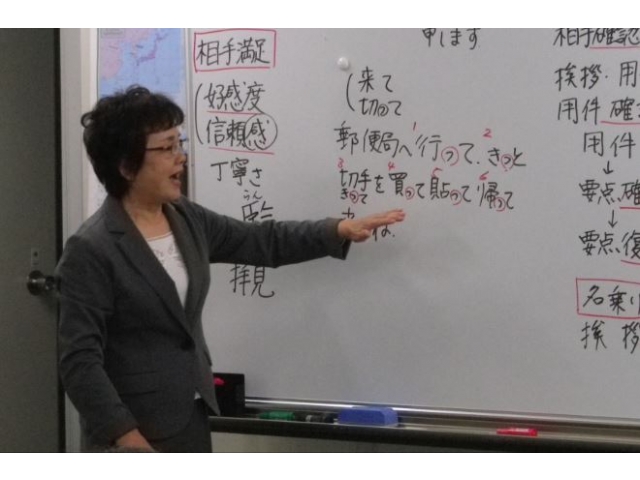 相手満足
(好感度
(信頼感)
丁寧さ
うん
拝見
申します
(来て
切って
郵便局へ行って、きっと
切手を買って貼って帰って
きって
1
2
3
4
5
6
相手確認
挨拶・用
用件 確
用件
↓
要点、確
↓
要点、復
名乗り
挨拶